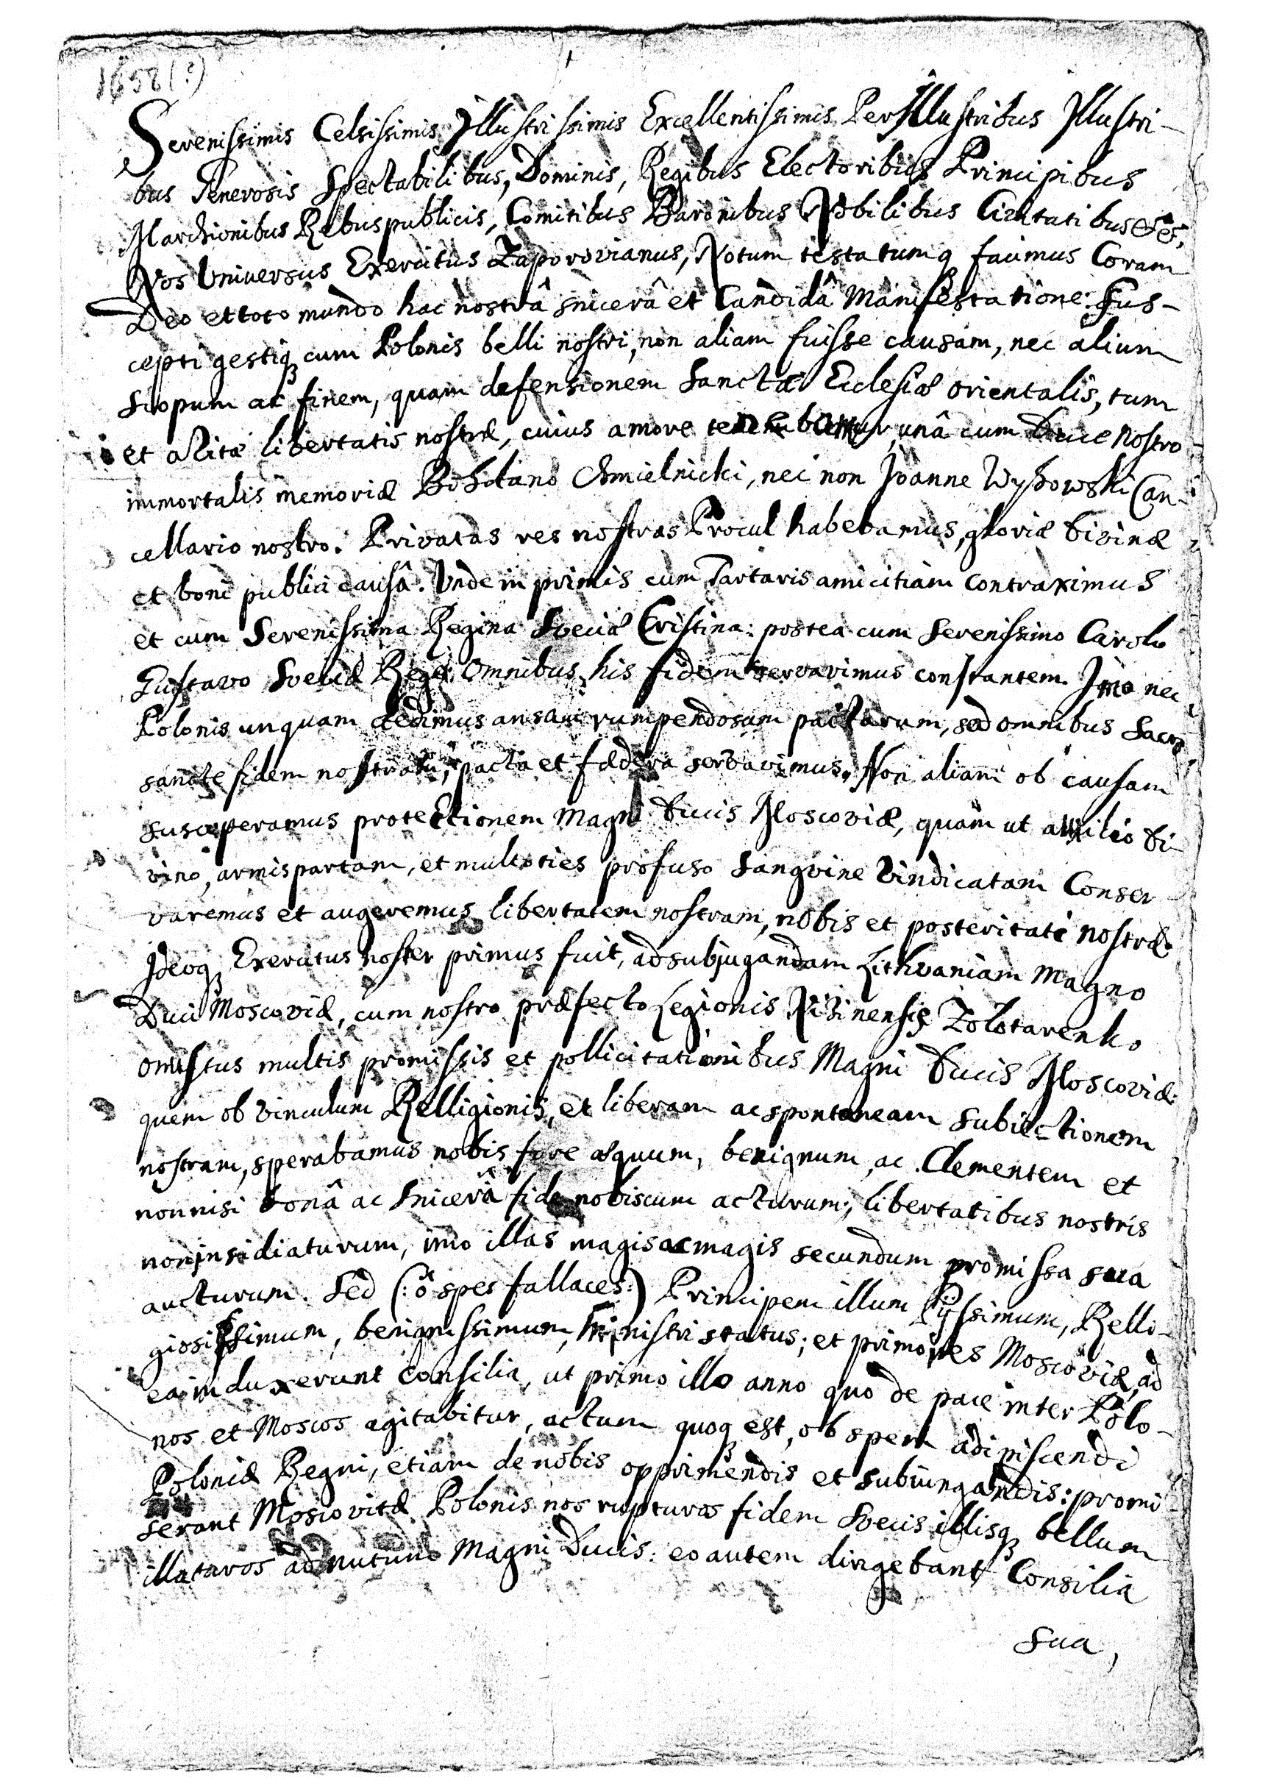 1658(?)
Serenissimis Celsissimis Illustrissimis Excellentissimis PerIllustribus Illustri-
bus Generosis Spectabilibus, Dominis, Regibus Electoribus Principibus
Marchionibus Rebuspublicis, Comitibus Baronibus Nobilibus Civitatibus etc.
Nos Universus Exercitus Zaporovianus, Notum testatumq facimus Coram
Deo et toto mundo hac nostrâ sincerâ et Candidâ Manifestatione: Sus-
cepti gestiq cum Polonis belli nostri, non aliam fuisse causam, nec alium
scopum ac finem, quam defensionem Sanctæ Ecclesiæ Orientalis, tum
et avitæ libertatis nostræ, cuius amore tenebamur, unâ cum Duce nostro
immortalis memoriæ Bohdano Chmielnicki, nec non Joanne Wyhowski Can-
cellario nostro. Privatas res nostras Procul habebamus, gloriæ divinæ
et boni publici causâ. Unde in primis cum Tartaris amicitiam contraximus
et cum Serenissima Regina Sveciæ Cristina: postea cum Serenissimo Carolo
Gustavo Sveciæ Rege. Omnibus his fidem servavimus constantem. Imo nec
Polonis unquam dedimus ansam rumpendorum pactorum, sed omnibus sacro
sancte fidem nostram, pacta et fædera servavimus. Non aliam ob causam
susceperamus protectionem Magni Ducis Moscoviæ, quam ut auxilio di-
vino, armis partam, et multoties profuso sangvine vindicatam Conser
varemus et augeremus libertatem nostram, nobis et posteritati nostræ.
Ideoq Exercitus noster primus fuit, ad subjugandam Lithvaniam Magno
Duci Moscoviæ, cum nostro præfecto Legionis Nizinensis Zolotarenko
onustus multis promissis et pollicitationibus Magni Ducis Moscoviæ:
quem ob vinculum Relligionis, et liberam ac spontaneam subiectionem
nostram, sperabamus nobis fore æquum, benignum, ac Clementem et
nonnisi bonâ ac sincerâ fide nobiscum acturum; libertatibus nostris
non insidiaturum, imo illas magis ac magis secundum promissa sua
aucturum. Sed (: ô spes fallaces:) Principem illum Pijssimum, Relli-
giosissimum, benignissimum, ministri status; et primores Moscoviæ, ad
ea induxerunt consilia, ut primo illo anno quo de pace inter Polo-
nos et Moscos agitabitur, actum quoq est, ob spem adipiscendi
Poloniæ Regni, etiam de nobis opprimendis et subiungandis: promi-
serant Moscovitæ Polonis nos rupturos fidem Svecis illisq bellum
illaturos ad nutum Magni Ducis: eo autem dirigebant Consilia
sua,